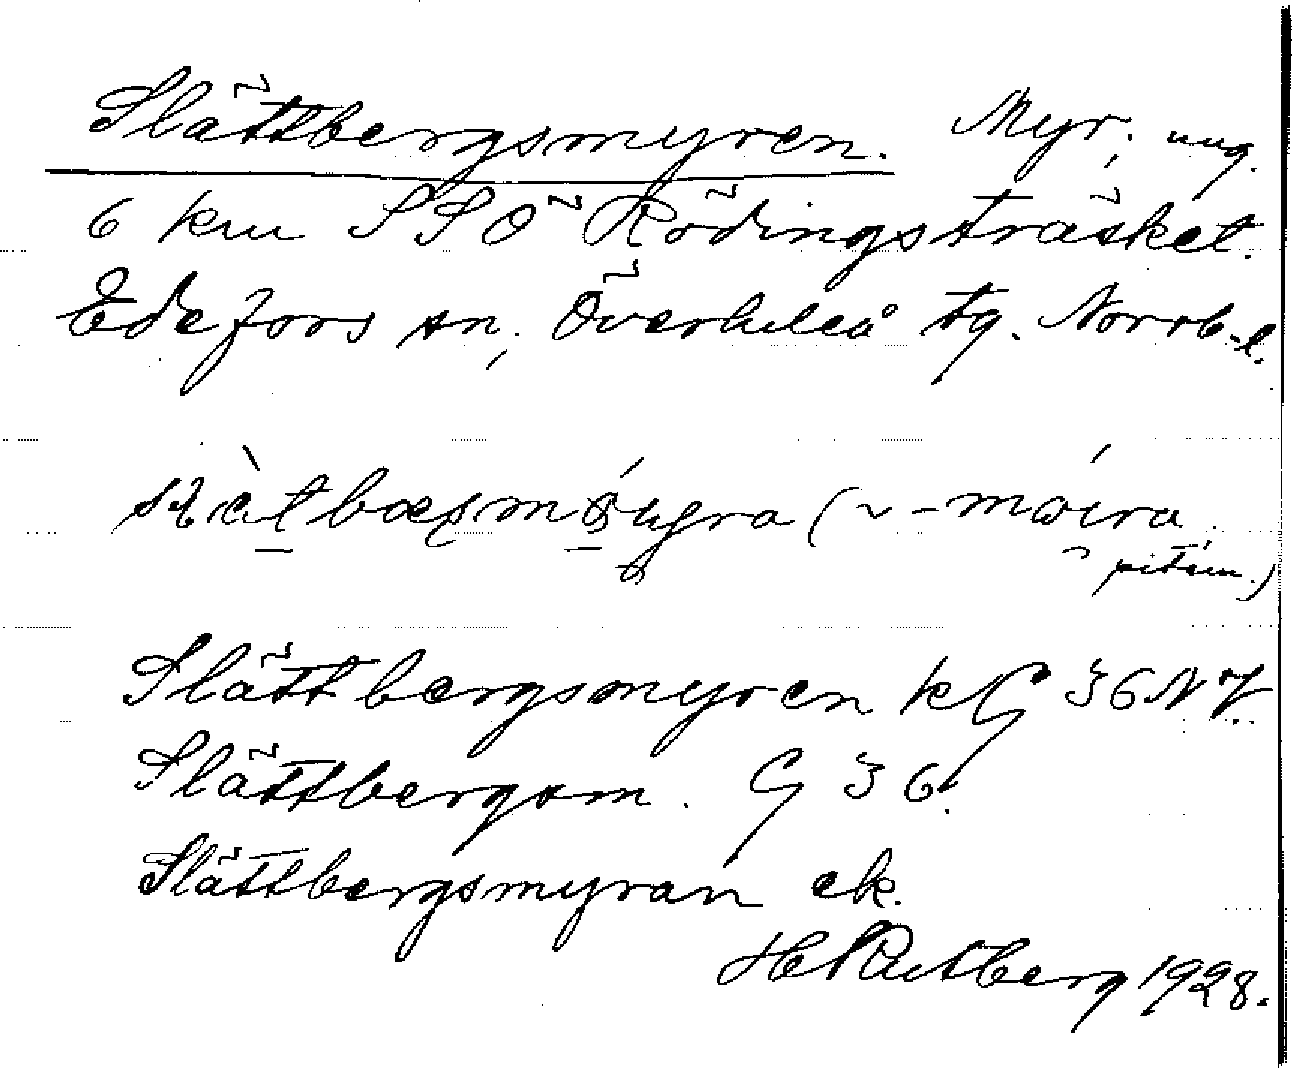 Slättbergsmyren. Myr, ung.
6 km SSÖ Rödingsträsket.
Edefors sn, Överluleå tg. Norrb-l.
(~ -
pitem.)
Slättbergsmyren kG 36 NV
Slättbergsm. G 36.
Slättbergsmyran ek.
H Rutberg 1928.